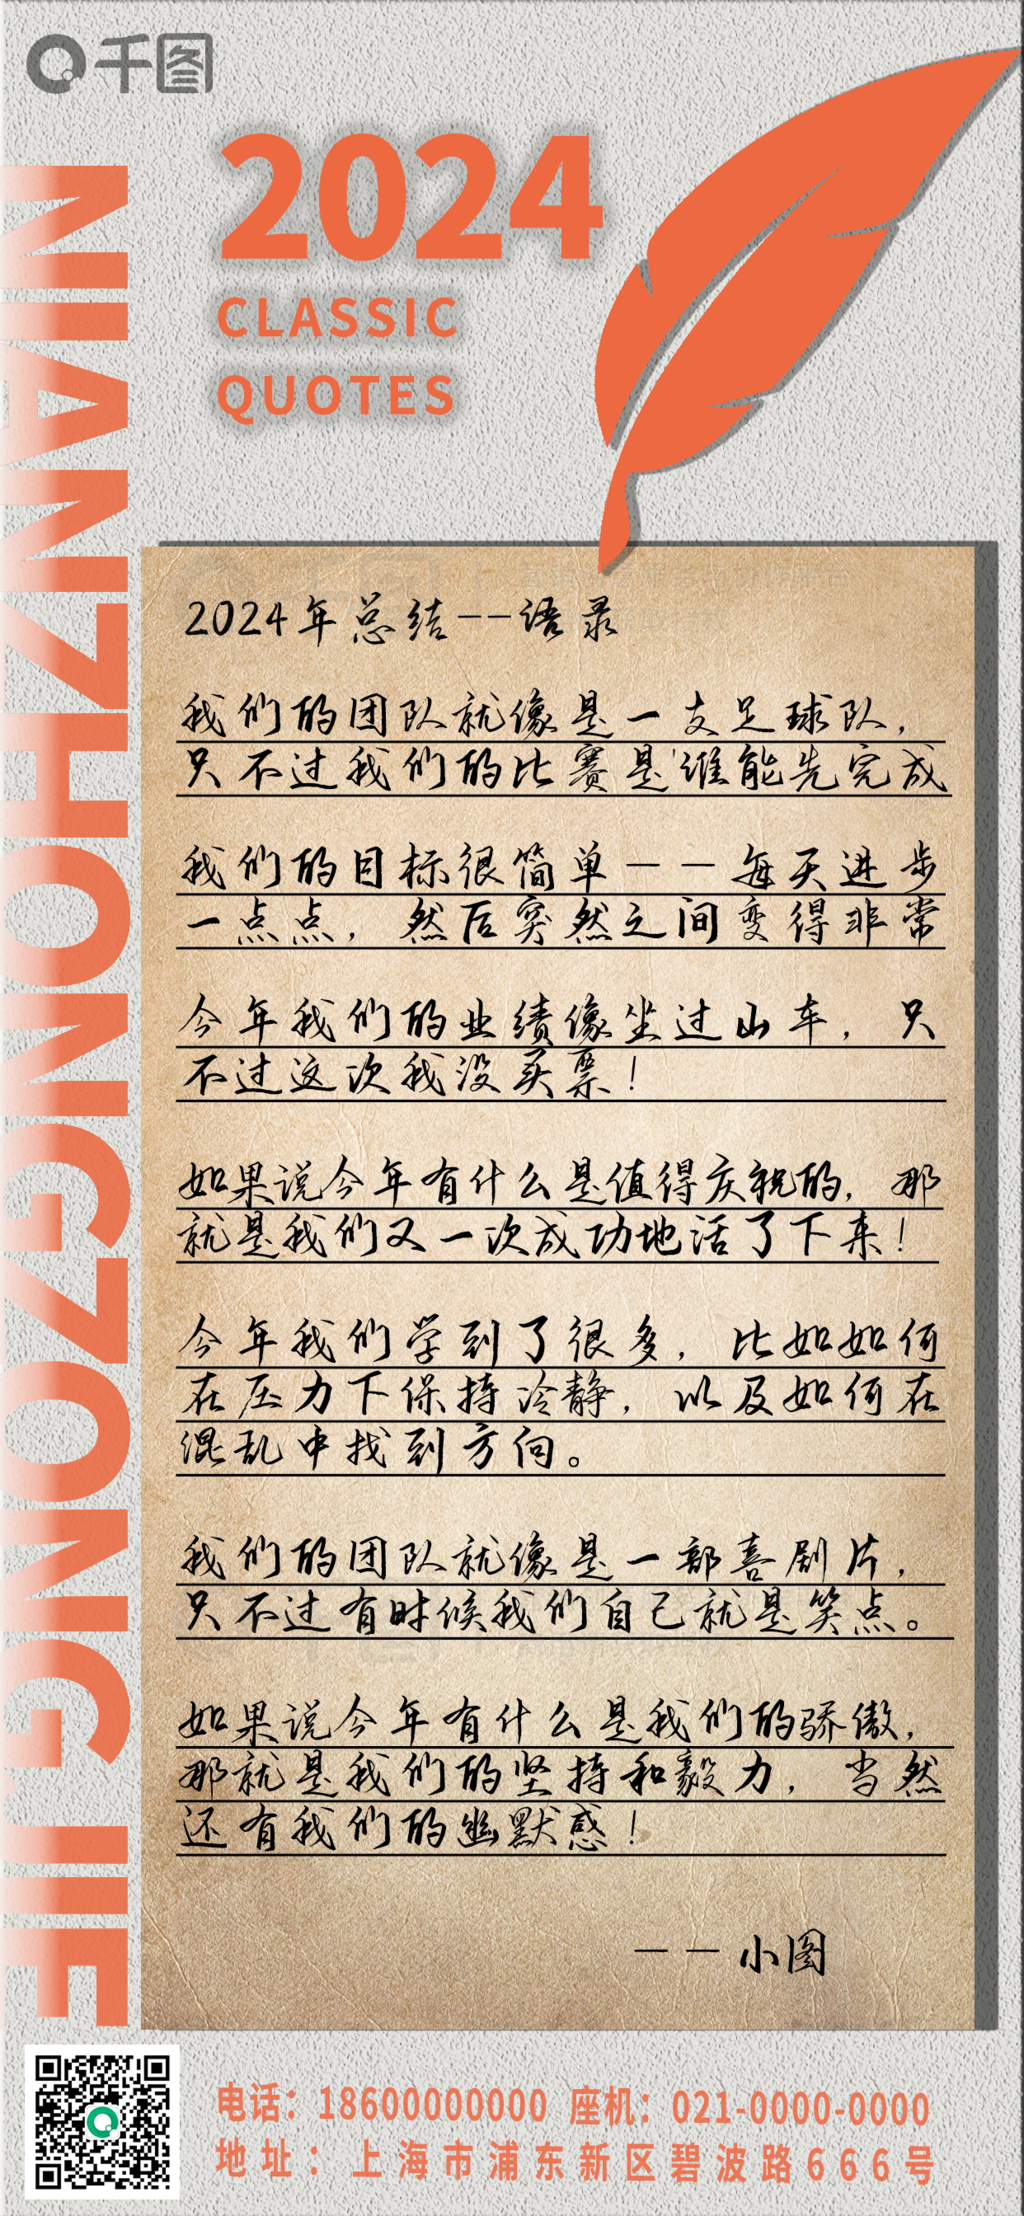 千图
2024
CLASSIC
QUOTES
NIANZHONGZONGJIE
2024年总结--语录
我们的团队就像是一支足球队，
只不过我们的比赛是'谁能先完成
我们的目标很简单——每天进步
一点点，然后突然之间变得非常
今年我们的业绩像坐过山车，只
不过这次我没买票！
如果说今年有什么是值得庆祝的，那
就是我们又一次成功地活了下来！
今年我们学到了很多，比如如何
在压力下保持冷静，以及如何在
混乱中找到方向。
我们的团队就像是一部喜剧片，
只不过有时候我们自己就是笑点。
如果说今年有什么是我们的骄傲，
那就是我们的坚持和毅力，当然
还有我们的幽默感！
——小图
电话：18600000000 座机：021-0000-0000
地址：上海市浦东新区碧波路666号